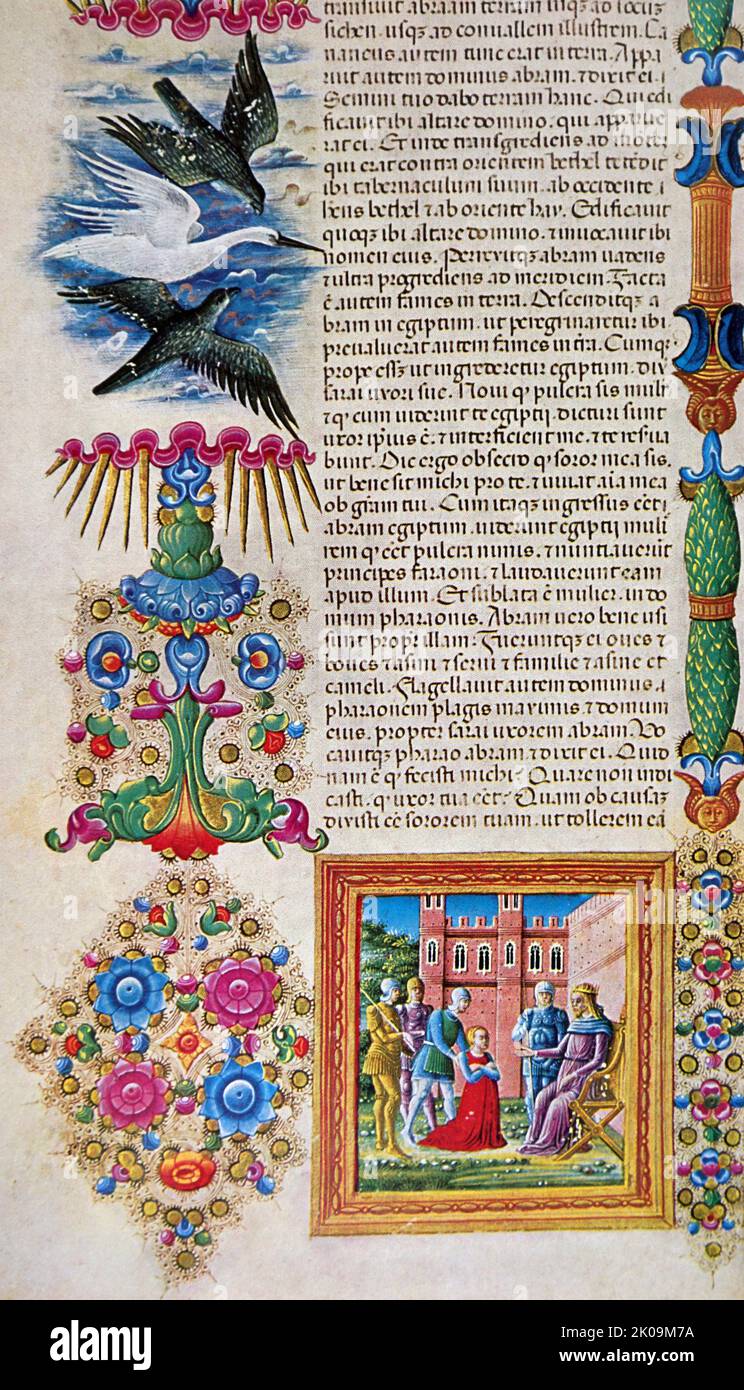 transiuit abraam terram usqȝ ad locuȝ
sichen. usqȝ ad conuallem illustrem. Ca
naneus autem tunc erat in terra. Appa
ruit autem dominus abram. ⁊ dixit ei.
Semini tuo dabo terram hanc. Qui edi
ficauit ibi altare domino. qui apparue
rat ei. Et inde transgrediens ad mōtem
qui erat contra orientem bethel tetēdit
ibi tabernaculum suum. ab occidente
hēns bethel ⁊ ab oriente hay. Edificauit
quoqȝ ibi altare domino. ⁊ inuocauit ibi
nomen eius. Perrexitqȝ abram uadens
⁊ ultra progrediens ad meridiem. Facta
ē autem fames in terra. Descenditqȝ a
bram in egiptum. ut peregrinaretur ibi
preualuerat autem fames in t̄ra. Cumqȝ
prope esset ut ingrederetur egiptum. dix
sarai uxori sue. Noui q' pulcra sis mulier
⁊ q' cum uiderint te egiptij. dicturi sunt
uxor ipsius ē. ⁊ interficient me. ⁊ te reserua
bunt. Dic ergo obsecro q' soror mea sis.
ut bene sit michi pro te. ⁊ uiuat aīa mea
ob grām tui. Cum itaqȝ ingressus eēt
abram egiptum. uiderunt egiptij muli
rem q' eēt pulcra nimis. ⁊ nuntiauerūt
principes faraoni. ⁊ laudauerunt eam
apud illum. Et sublata ē mulier. in do
mum pharaonis. Abram uero bene usi
sunt propr illam. Fueruntqȝ ei oues ⁊
boues ⁊ asini ⁊ serui ⁊ familie ⁊ asine et
cameli. Flagellauit autem dominus
pharaonem plagis maximis ⁊ domum
eius. propter sarai uxorem abram. Vo
cauitqȝ pharao abram ⁊ dixit ei. Quid
nam ē q' fecisti michi? Quare non indi
casti. q' uxor tua eēt? Quam ob causaȝ
dixisti eē sororem tuam. ut tollerem eā
alamy
alamy
Image ID: 2K09M7A
www.alamy.com